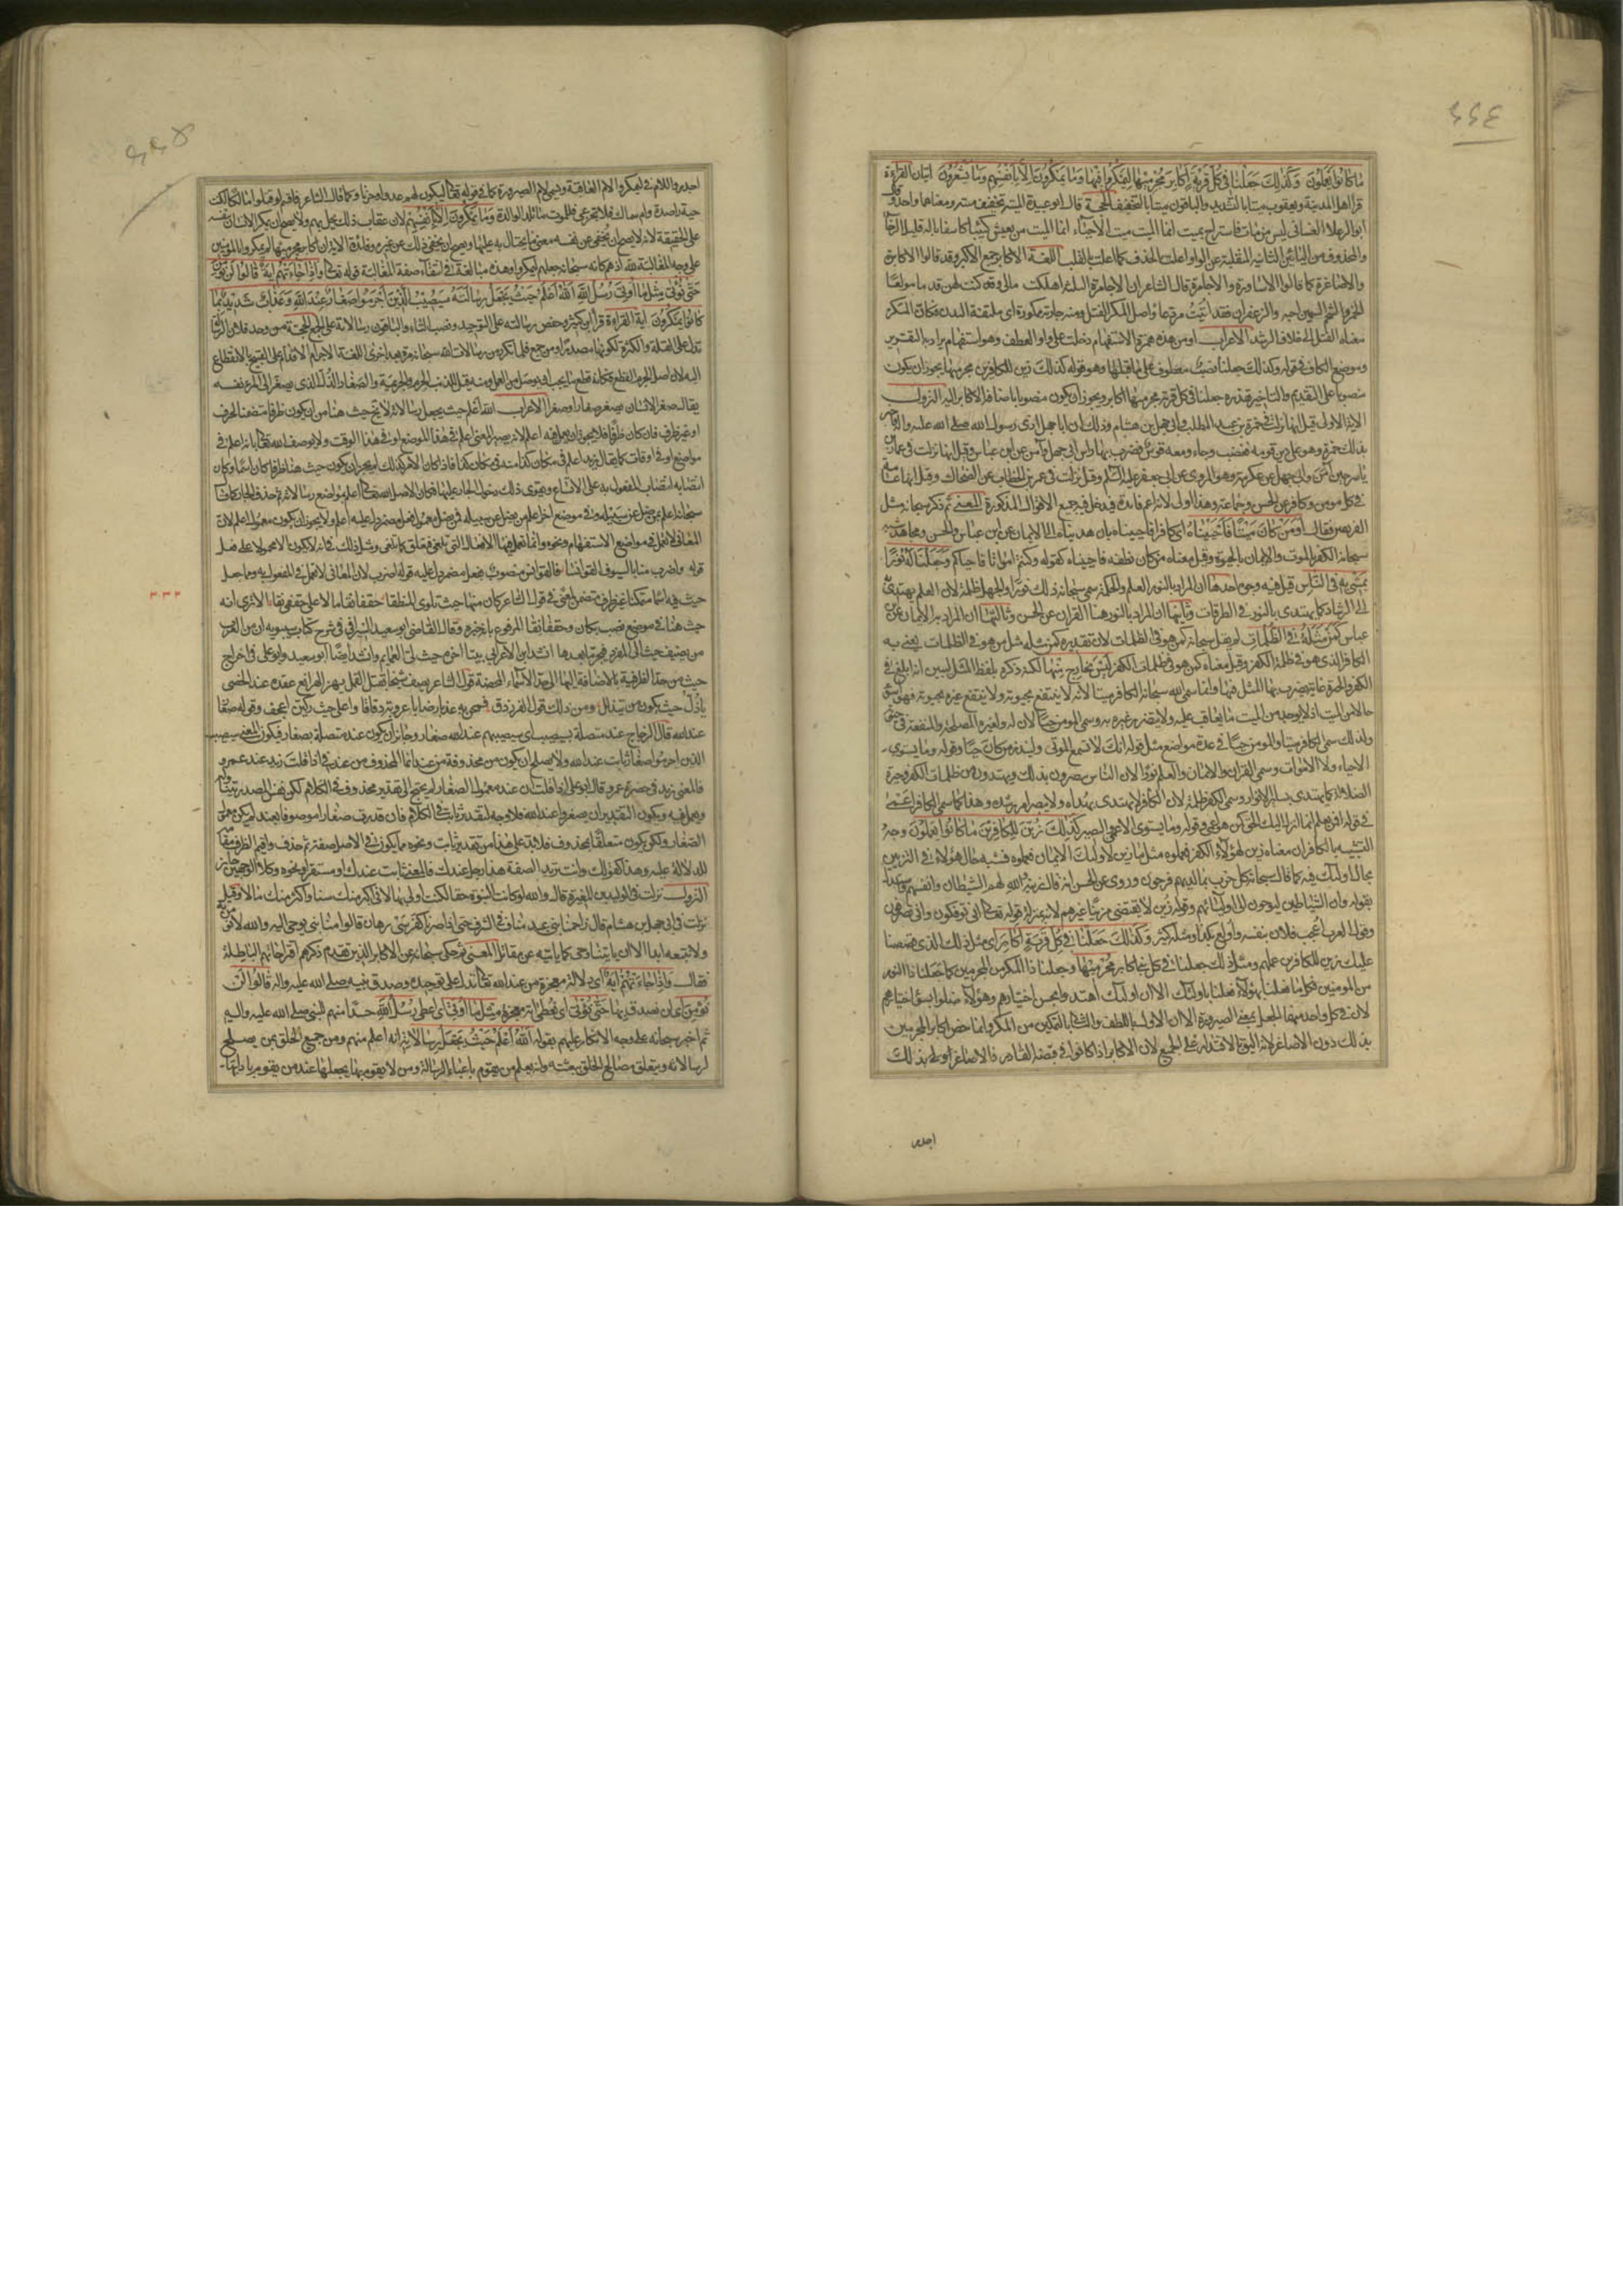 ٤٤٤
ما كانوا يعملون وكذلك جعلنا في كل قرية أكابر مجرميها ليمكروا فيها وما يمكرون إلا بأنفسهم وما يشعرون ايتان القراءة
قرأ اهل المدينة ويعقوب ميتا بالتشديد والباقون ميتا بالتخفيف الحجة قال ابو عبيدة الميتة تخفيف ميتة ومعناهما واحد قال
ابو الرعلاء الغساني ليس من مات فاستراح بميت انما الميت ميت الأحياء انما الميت من يعيش كئيبا كاسفا باله قليل الرخاء
والمحذوف من اليائين الثانية المنقلبة عن الواو اعلت بالحذف كما اعلت بالقلب اللغة الاكابر جمع الاكبر وقد قالوا الاكابرة
والاصاغرة كما قالوا الاساورة والاحامرة قال الشاعر ان الاحامرة الثلثة اهلكت مالي وكنت بهن قدما مولعا
الخمر واللحم السمين احبه والزعفران فقد ابيت مردعا واصل المكر الفتل ومنه جارية ممكورة اى ملتفة البدن فكان المكر
معناه الفتل الى خلاف الرشد الاعراب اومن هذه همزة الاستفهام دخلت على واو العطف وهو استفهام يراد به التقرير
وموضع الكاف في قوله وكذلك جعلنا نصب معطوف على ما قبلها وهو قوله كذلك زين للكافرين مجرميها يجوز ان يكون
منصوبا على التقديم والتاخير تقديره جعلنا في كل قرية مجرميها اكابر ويجوز ان يكون منصوبا باضافة الاكابر اليه النزول
الآية الاولى قيل انها نزلت في حمزة بن عبد المطلب وابي جهل بن هشام وذلك ان ابا جهل اذى رسول الله صلى الله عليه واله فاخبر
بذلك حمزة وهو على دين قومه فغضب وجاء ومعه قوس فضرب بها راس ابي جهل وآمن عن ابن عباس وقيل انها نزلت في عمار بن
ياسر حين آمن وابي جهل عن عكرمة وهو المروي عن ابي جعفر عليه السلم وقيل نزلت في عمر بن الخطاب عن الضحاك وقيل انها عامة
في كل مومن وكافر عن الحسن وجماعة وهذا اولى لانه اعم فائدة فيدخل فيه جميع الاقوال المذكورة المعنى ثم ذكر سبحانه مثل
الفريقين فقال أومن كان ميتا فأحييناه اى كافرا فاحييناه بان هديناه الى الايمان عن ابن عباس والحسن ومجاهد شبه
سبحانه الكفر بالموت والايمان بالحيوة وقيل معناه من كان نطفة فاحييناه كقوله وكنتم امواتا فاحياكم وجعلنا له نورا
يمشي به في الناس قيل فيه وجوه احدها ان المراد بالنور العلم والحكمة سمى سبحانه ذلك نورا والجهل ظلمة لان العلم يهتدى به
الى الرشاد كما يهتدى بالنور في الطرقات وثانيها ان المراد بالنور هنا القران عن الحسن وثالثها ان المراد به الايمان عن ابن
عباس كمن مثله في الظلمات لم يقل سبحانه كمن هو في الظلمات لان تقديره كمن مثله مثل من هو في الظلمات يعني به
الكافر الذي هو في ظلمة الكفر وقيل معناه كمن هو في ظلمات الكفر ليس بخارج منها لكنه ذكره بلفظ المثل ليبين انه بلغ في
الكفر والحيرة غاية يضرب به المثل فيها وانما سمى الله سبحانه الكافر ميتا لانه لا ينتفع بحيوته ولا ينتفع غيره بحيوته فهو اسوء
حالا من الميت اذ لا يوجد من الميت ما يعاقب عليه ولا يتضرر غيره به وسمى المومن حيا لان له ولغيره المصلحة والمنفعة في حيوته
ولذلك سمى الكافر ميتا والمومن حيا في عدة مواضع مثل قوله انك لا تسمع الموتى ولينذر من كان حيا وقوله وما يستوي
الاحياء ولا الاموات وسمى القران والايمان والعلم نورا لان الناس يبصرون بذلك ويهتدون من ظلمات الكفر وحيرة
الضلالة كما يهتدى بساير الانوار وسمى الكفر ظلمة لان الكافر لا يهتدى بهداه ولا يبصر امر رشده وهذا كما سمى الكافر اعمى
في قوله افمن يعلم انما انزل اليك الحق كمن هو اعمى وقوله وما يستوي الاعمى والبصير كذلك زين للكافرين ما كانوا يعملون وجه
التشبيه بالكافر ان معناه زين لهؤلاء الكفر فعملوه مثل ما زين لاولئك الايمان فعملوه فشبه حال هؤلاء في التزيين
بحال اولئك فيه كما قال سبحانه كل حزب بما لديهم فرحون وروى عن الحسن انه قال زينه والله لهم الشيطان وانفسهم واستدل
بقوله وان الشياطين ليوحون الى اوليائهم وقوله زين لا يقتضي مزينا غيرهم لانه بمنزلة قوله تعالى انى توفكون وانى تصرفون
وقول العرب اعجب فلان بنفسه واولع بكذا ومثله كثير وكذلك جعلنا في كل قرية أكابر اى مثل ذلك الذي قصصنا
عليك زين للكافرين عملهم ومثل ذلك جعلنا في كل قرية اكابر مجرميها وجعلنا ذا المكر من المجرمين كما جعلنا ذا النور
من المومنين فكلما فعلنا بهؤلاء فعلنا باولئك الا ان اولئك اهتدوا بحسن اختيارهم وهؤلاء ضلوا بسوء اختيارهم
لان في كل واحد منهما الجعل بمعنى الصيرورة الا ان الاول باللطف والثاني بالتمكين من المكر وانما خص اكابر المجرمين
بذلك دون الاصاغر لانه اليق بالاقتدار على الجميع لان الاكابر اذا كانوا في قبضة القادر فالاصاغر اولى بذلك
اجدر
٤٤٥
اجدر واللام في ليمكروا لام العاقبة ويسمى لام الصيرورة كما في قوله تعالى ليكون لهم عدوا وحزنا وكما قال الشاعر فاقسم لو قتلوا مالكا لكنت
حية راصدة وام سماك فلا تجزعي فللموت ما تلد الوالدة وما يمكرون الا بأنفسهم لان عقاب ذلك يحل بهم ولا يصح ان يمكر الانسان بنفسه
على الحقيقة لانه لا يصح ان يخفي عن نفسه معنى ما يحتال به عليها ويصح ان يخفي ذلك عن غيره وفائدة الآية ان اكابر مجرميها لم يمكروا بالمومنين
على وجه المغالبة لله اذ هم كانه سبحانه جعلهم ليمكروا وهذه مبالغة في انتفاء صفة المغالبة قوله تعالى واذا جاءتهم آية قالوا لن نؤمن
حتى نؤتى مثل ما أوتي رسل الله الله أعلم حيث يجعل رسالته سيصيب الذين أجرموا صغار عند الله وعذاب شديد بما
كانوا يمكرون آية القراءة قرأ ابن كثير وحفص رسالته على التوحيد ونصب التاء والباقون رسالاته على الجمع الحجة من وحد فلان الرسالة
تدل على القلة والكثرة لكونها مصدرا ومن جمع فلما تكرر من رسالات الله سبحانه مرة بعد اخرى اللغة الاجرام الاقدام على القبيح بالانقطاع
اليه لان اصل الجرم القطع فكانه قطع ما يجب ان يوصل من العمل ومنه قيل للذنب الجرم والجريمة والصغار الذل الذي يصغر الى المرء نفسه
يقال صغر الانسان يصغر صغارا وصغرا الاعراب الله اعلم حيث يجعل رسالاته لا يخ حيث هنا من ان يكون ظرفا متضمنا لحرف
او غير ظرف فان كان ظرفا فلا يجوز ان يعمل فيه اعلم لانه يصير المعنى اعلم في هذا الموضع او في هذا الوقت ولا يوصف الله تعالى بانه اعلم في
مواضع او في اوقات كما يقال زيد اعلم في مكان كذا منه في مكان كذا فاذا كان الامر كذلك لم يجز ان يكون حيث هنا ظرفا واذا كان اسما كان
انتصابه انتصاب المفعول به على الاتساع ويقوي ذلك دخول الجار عليها فكان الاصل الله تعالى اعلم بمواضع رسالاته ثم حذف الجار كما قال
سبحانه اعلم بمن ضل عن سبيله وفي موضع اخر اعلم من يضل عن سبيله فمن يضل معمول فعل مضمر دل عليه اعلم ولا يجوز ان يكون معمول اعلم لان
المعاني لا تعمل في مواضع الاستفهام ونحوه وانما تعمل فيها الافعال التي تلغى فتعلق كما تلغى ومثل ذلك في انه لا يكون الا محمولا على فعل
قوله واضرب منا بالسيوف القوانسا فالقوانس منصوب بفعل مضمر دل عليه قوله اضرب لان المعاني لا تعمل في المفعول به ومما جعل
حيث فيه اسما متمكنا غير ظرف متضمن لمعنى في قول الشاعر
حيث هنا في موضع نصب بكان وقال القاضي ابو سعيد السيرافي في شرح كتاب سيبويه ان من العرب
من يضيف حيث الى المفرد فيجر ما بعدها انشد ابن الاعرابي بيتا اخره حيث لي العمايم وانشد ايضا ابو سعيد وابو علي في اخراج
حيث من حد الظرفية بالاضافة اليها الى حد الاسماء المحضة قول الشاعر يصف شيخا يقتل القمل يهز الهرانع عقده عند الخصى
باذل حيث يكون من يتذلل ومن ذلك قول الفرزدق
عند الله قال الزجاج عند متصلة بسيصيب اى سيصيبهم عند الله صغار وجائز ان يكون عند متصلة بصغار فيكون المعنى سيصيب
الذين اجرموا صغار ثابت عند الله ولا يصلح ان يكون من محذوفة من عند انما المحذوف من عند في اذا قلت زيد عند عمرو
فالمعنى زيد في حضرة عمرو قال ابو علي اذا قلت ان عند معمول الصغار لم يحتج الى تقدير محذوف في الكلام لكن نفس المصدر يتناوله
ويعمل فيه ويكون التقدير ان يصغروا عند الله فلا وجه لتقدير ثابت في الكلام فان قدرت صغارا موصوفا بعند لم يكن معمول
الصغار ولكن يكون متعلقا بمحذوف فلا بد على هذا من تقدير ثابت ونحوه مما يكون في الاصل صفة ثم حذف واقيم الظرف مقامه
للدلالة عليه وهذا كقولك وانت تريد الصفة هذا رجل عندك فالمعنى ثابت عندك او مستقر او نحوه وكلا الوجهين جائز
النزول نزلت في الوليد بن المغيرة قال والله لو كانت النبوة حقا لكنت اولى بها لانى اكبر منك سنا واكثر منك مالا وقيل
نزلت في ابي جهل بن هشام قال زاحمنا بني عبد مناف في الشرف حتى اذا صرنا كفرسي رهان قالوا منا نبي يوحى اليه والله لا نؤمن به
ولا نتبعه ابدا الا ان ياتينا وحى كما ياتيه عن مقاتل المعنى ثم حكى سبحانه عن الاكابر الذين تقدم ذكرهم اقتراحاتهم الباطلة
فقال واذا جاءتهم آية اى دلالة معجزة من عند الله تعالى تدل على توحيده وصدق نبيه صلى الله عليه واله قالوا لن
نؤمن اى لن نصدق بها حتى نؤتى اى نعطى اية معجزة مثل ما أوتي اى اعطى رسل الله حسدا منهم للنبي صلى الله عليه واله
ثم اخبر سبحانه على وجه الانكار عليهم بقوله الله أعلم حيث يجعل رسالاته انه اعلم منهم ومن جميع الخلق بمن يصلح
لرسالاته ويتعلق مصالح الخلق ببعثته وانه يعلم من يقوم باعباء الرسالة ومن لا يقوم بها فيجعلها عند من يقوم بادائها
٣٣٣